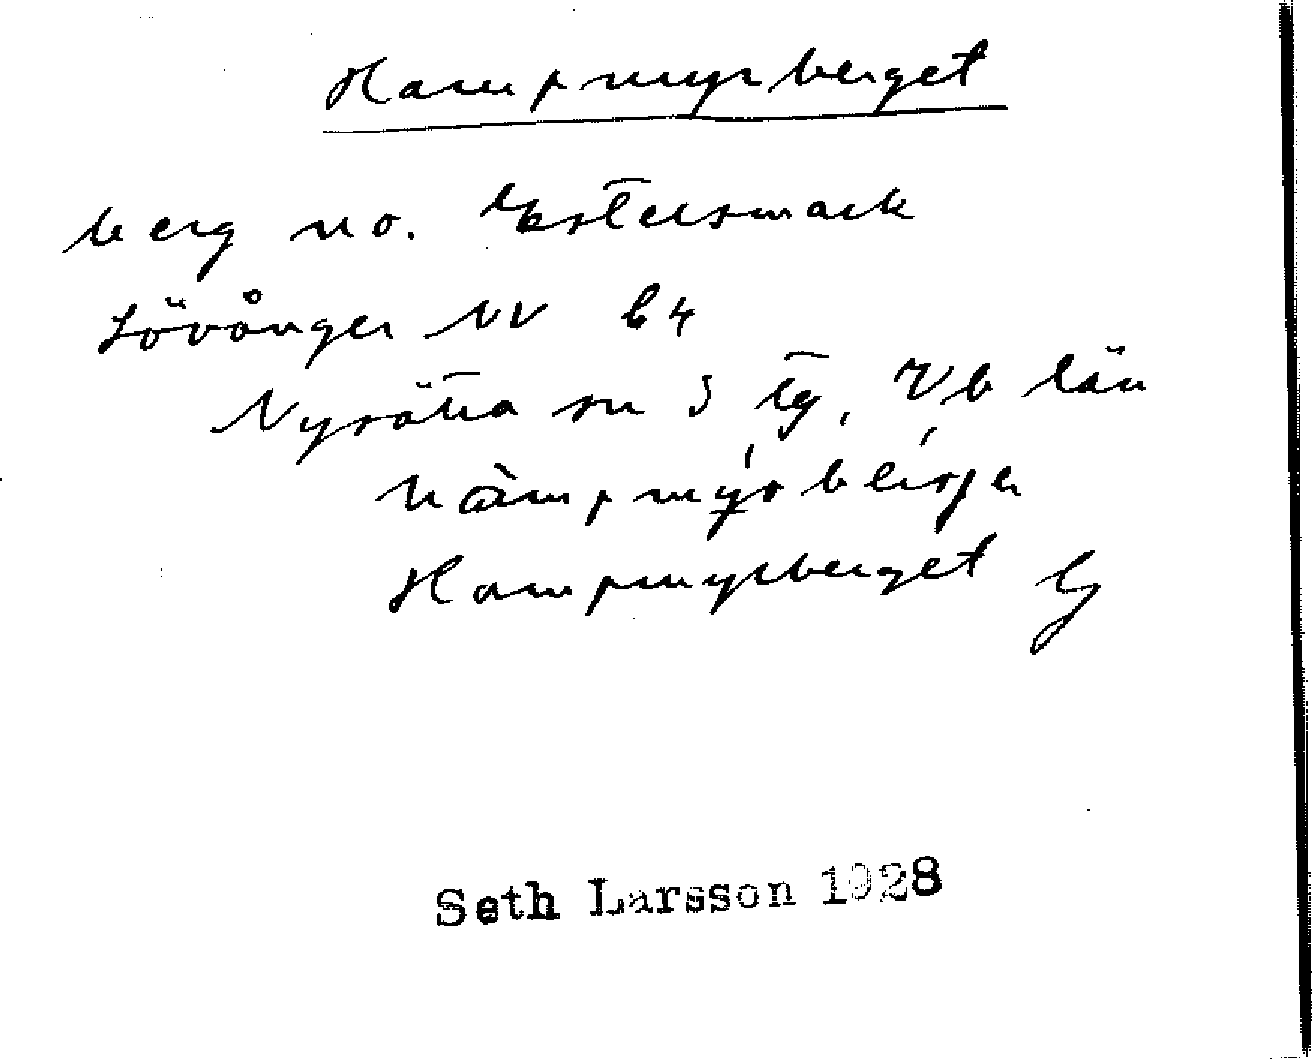 Hampmyrberget
berg no. Estersmark
Lövånger NV b4
Nysätra sn S tg, Vb län
hàmpmýrbérje
Hampmyrberget
Seth Larsson 1928